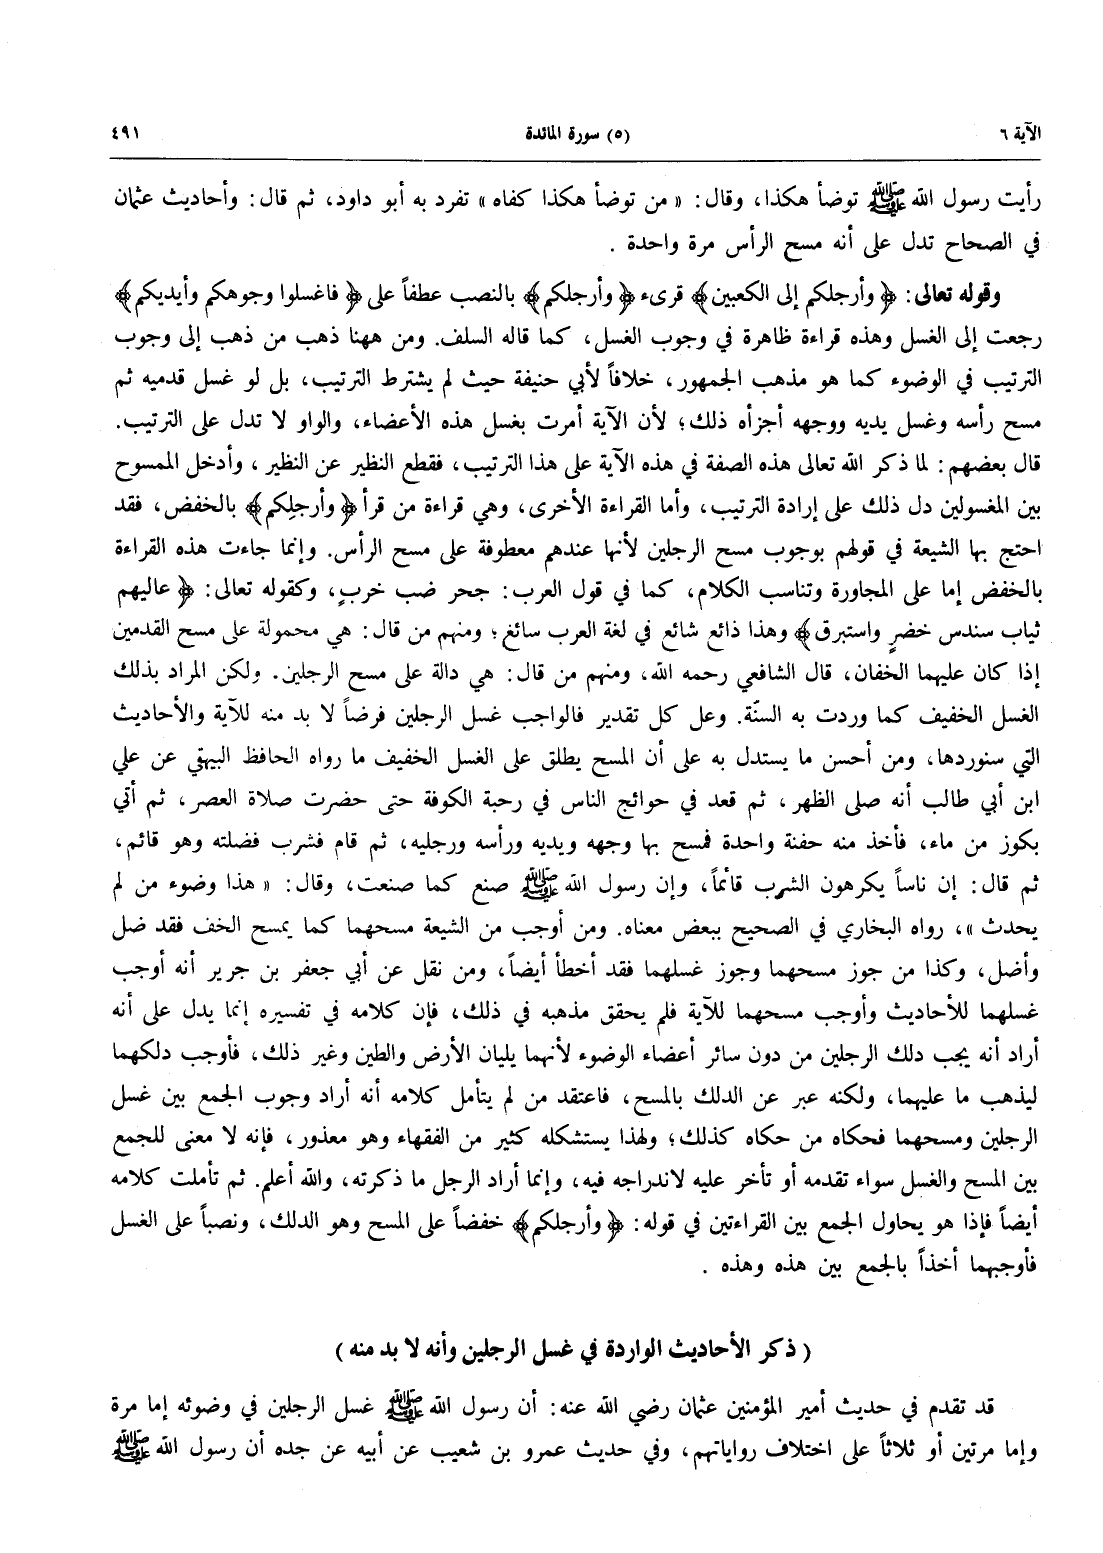 الآية ٦ (٥) سورة المائدة ٤٩١
رأيت رسول الله ﷺ توضأ هكذا، وقال: « من توضأ هكذا كفاه » تفرد به أبو داود، ثم قال: وأحاديث عثمان
في الصحاح تدل على أنه مسح الرأس مرة واحدة .
وقوله تعالى: ﴿ وأرجلكم إلى الكعبين﴾ قرىء ﴿ وأرجلكم﴾ بالنصب عطفاً على ﴿ فاغسلوا وجوهكم وأيديكم﴾
رجعت إلى الغسل وهذه قراءة ظاهرة في وجوب الغسل، كما قاله السلف. ومن ههنا ذهب من ذهب إلى وجوب
الترتيب في الوضوء كما هو مذهب الجمهور، خلافاً لأبي حنيفة حيث لم يشترط الترتيب، بل لو غسل قدميه ثم
مسح رأسه وغسل يديه ووجهه أجزأه ذلك؛ لأن الآية أمرت بغسل هذه الأعضاء، والواو لا تدل على الترتيب.
قال بعضهم: لما ذكر الله تعالى هذه الصفة في هذه الآية على هذا الترتيب، فقطع النظير عن النظير ، وأدخل الممسوح
بين المغسولين دل ذلك على إرادة الترتيب، وأما القراءة الأخرى، وهي قراءة من قرأ ﴿ وأرجلِكم﴾ بالخفض، فقد
احتج بها الشيعة في قولهم بوجوب مسح الرجلين لأنها عندهم معطوفة على مسح الرأس. وإنما جاءت هذه القراءة
بالخفض إما على المجاورة وتناسب الكلام، كما في قول العرب: جحر ضب خربٍ، وكقوله تعالى: ﴿ عاليهم
ثياب سندس خضرٍ واستبرق﴾ وهذا ذائع شائع في لغة العرب سائغ؛ ومنهم من قال: هي محمولة على مسح القدمين
إذا كان عليهما الخفان، قال الشافعي رحمه الله، ومنهم من قال: هي دالة على مسح الرجلين. ولكن المراد بذلك
الغسل الخفيف كما وردت به السنّة. وعل كل تقدير فالواجب غسل الرجلين فرضاً لا بد منه للآية والأحاديث
التي سنوردها، ومن أحسن ما يستدل به على أن المسح يطلق على الغسل الخفيف ما رواه الحافظ البيهقي عن علي
ابن أبي طالب أنه صلى الظهر، ثم قعد في حوائج الناس في رحبة الكوفة حتى حضرت صلاة العصر، ثم أتي
بكوز من ماء، فأخذ منه حفنة واحدة فمسح بها وجهه ويديه ورأسه ورجليه، ثم قام فشرب فضلته وهو قائم،
ثم قال: إن ناساً يكرهون الشرب قائماً، وإن رسول الله ﷺ صنع كما صنعت، وقال: « هذا وضوء من لم
يحدث »، رواه البخاري في الصحيح ببعض معناه. ومن أوجب من الشيعة مسحهما كما يمسح الخف فقد ضل
وأضل، وكذا من جوز مسحهما وجوز غسلهما فقد أخطأ أيضاً، ومن نقل عن أبي جعفر بن جرير أنه أوجب
غسلهما للأحاديث وأوجب مسحهما للآية فلم يحقق مذهبه في ذلك، فإن كلامه في تفسيره إنما يدل على أنه
أراد أنه يجب دلك الرجلين من دون سائر أعضاء الوضوء لأنهما يليان الأرض والطين وغير ذلك، فأوجب دلكهما
ليذهب ما عليهما، ولكنه عبر عن الدلك بالمسح، فاعتقد من لم يتأمل كلامه أنه أراد وجوب الجمع بين غسل
الرجلين ومسحهما فحكاه من حكاه كذلك؛ ولهذا يستشكله كثير من الفقهاء وهو معذور، فإنه لا معنى للجمع
بين المسح والغسل سواء تقدمه أو تأخر عليه لاندراجه فيه، وإنما أراد الرجل ما ذكرته، والله أعلم. ثم تأملت كلامه
أيضاً فإذا هو يحاول الجمع بين القراءتين في قوله: ﴿ وأرجلكم﴾ خفضاً على المسح وهو الدلك، ونصباً على الغسل
فأوجبهما أخذاً بالجمع بين هذه وهذه .
( ذكر الأحاديث الواردة في غسل الرجلين وأنه لا بد منه )
قد تقدم في حديث أمير المؤمنين عثمان رضي الله عنه: أن رسول الله ﷺ غسل الرجلين في وضوئه إما مرة
وإما مرتين أو ثلاثاً على اختلاف رواياتهم، وفي حديث عمرو بن شعيب عن أبيه عن جده أن رسول الله ﷺ